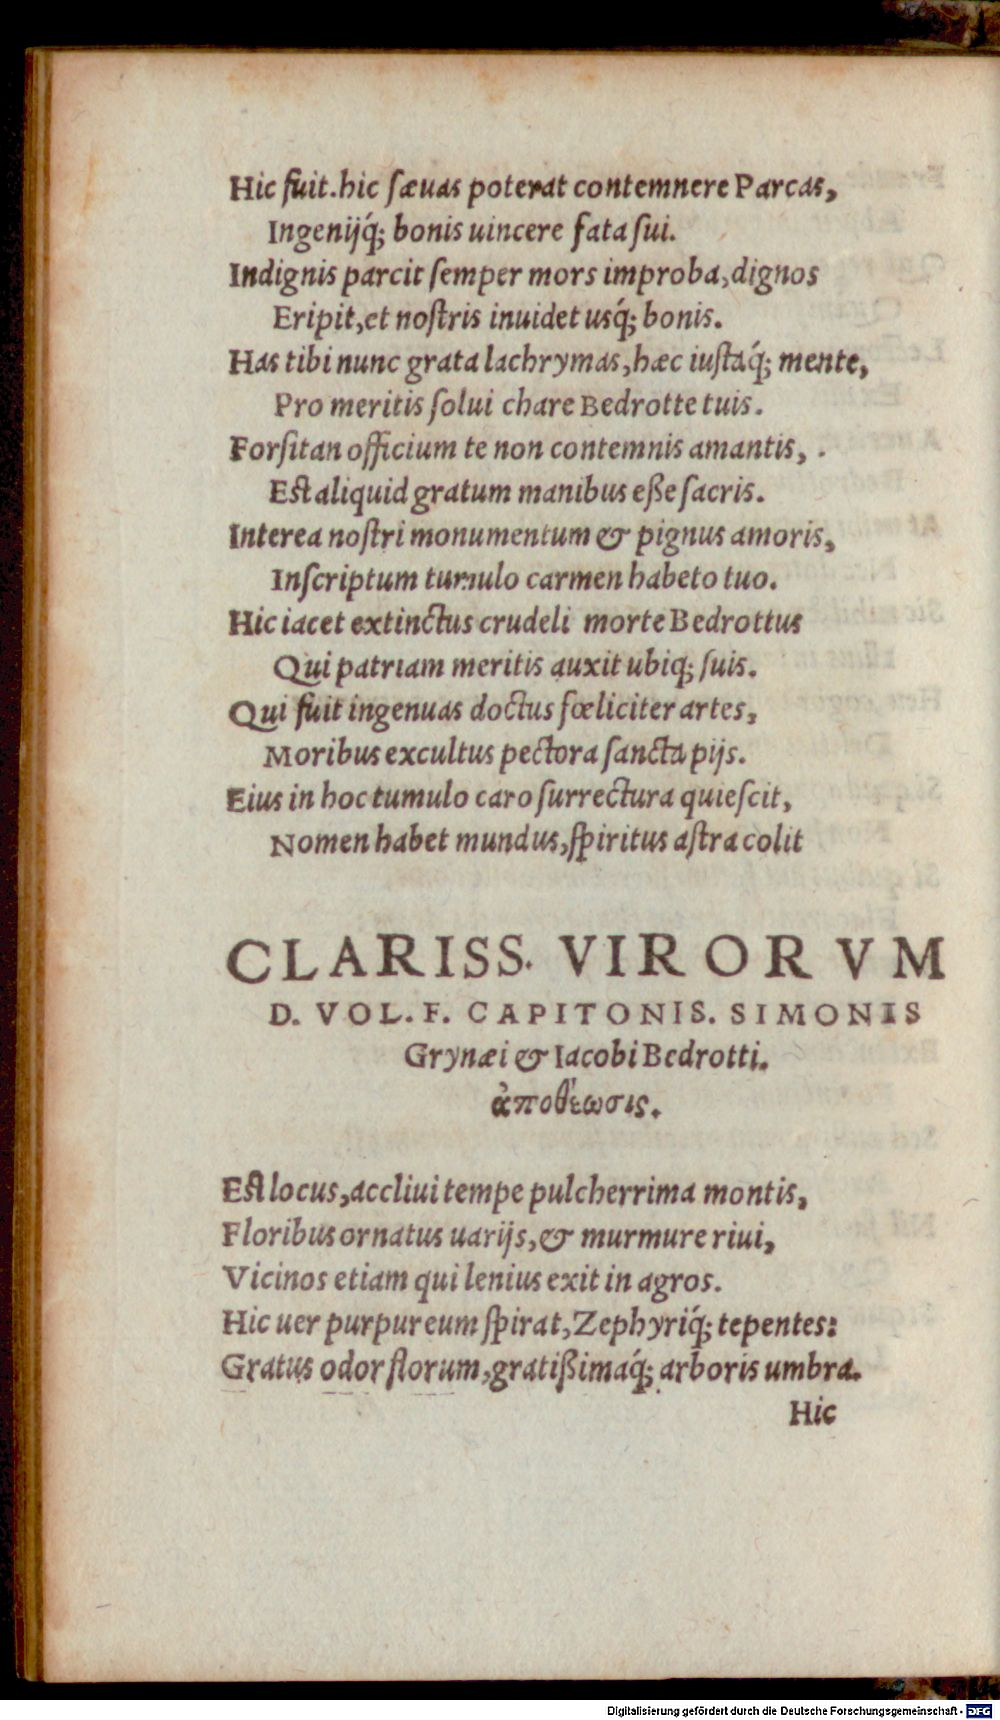 Hic fuit.hic ſæuas poterat contemnere Parcas,
Ingenijq́; bonis uincere fata ſui.
Indignis parcit ſemper mors improba,dignos
Eripit,et noſtris inuidet usq́; bonis.
Has tibi nunc grata lachrymas,hæc iuſtaq́; mente,
Pro meritis ſolui chare Bedrotte tuis.
Forſitan officium te non contemnis amantis,
Eſt aliquid gratum manibus eße ſacris.
Interea noſtri monumentum & pignus amoris,
Inſcriptum tumulo carmen habeto tuo.
Hic iacet extinctus crudeli morte Bedrottus
Qui patriam meritis auxit ubiq; ſuis.
Qui fuit ingenuas doctus fœliciter artes,
Moribus excultus pectora ſancta pijs.
Eius in hoc tumulo caro ſurrectura quieſcit,
Nomen habet mundus,ſpiritus aſtra colit
CLARISS. VIRORVM
D. VOL. F. CAPITONIS. SIMONIS
Grynæi & Iacobi Bedrotti.
ἀποθέωσις.
Eſt locus,accliui tempe pulcherrima montis,
Floribus ornatus uarijs,& murmure riui,
Vicinos etiam qui lenius exit in agros.
Hic uer purpureum ſpirat,Zephyriq́; tepentes:
Gratus odor florum,gratißimaq́; arboris umbra.
Hic
Digitalisierung gefördert durch die Deutsche Forschungsgemeinschaft - DFG